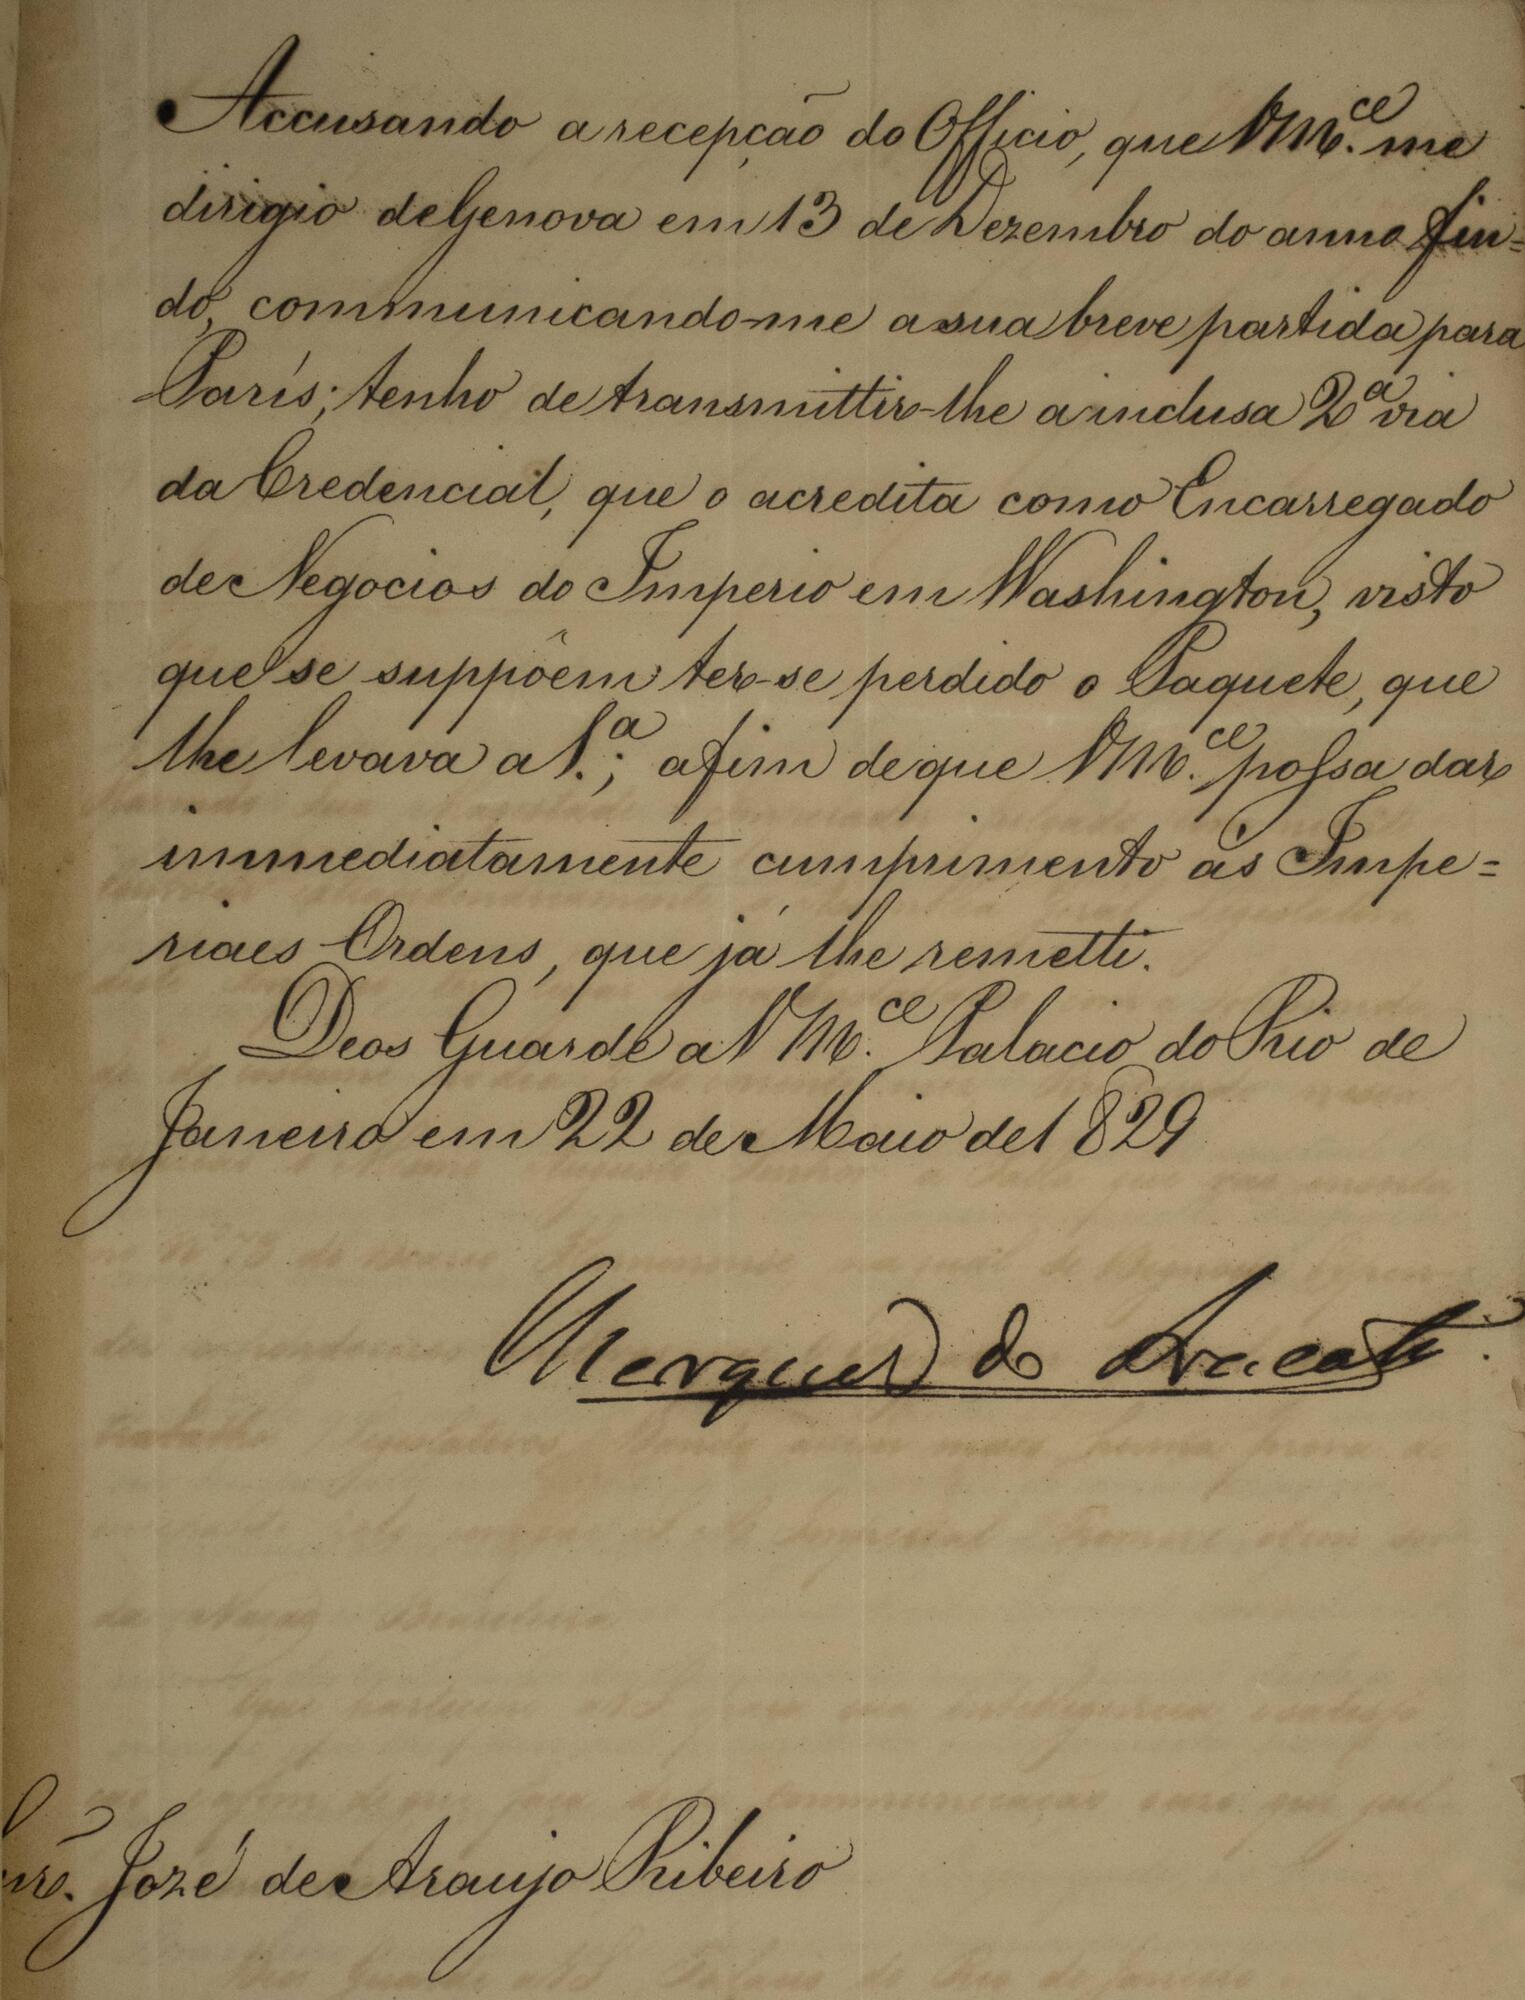 Accusando a recepção do Officio, que VM.ce me
dirigio de Genova em 13 de Dezembro do anno fin=
do, communicando-me a sua breve partida para
París; tenho de transmittir-lhe a inclusa 2a via
da Credencial, que o acredita como Encarregado
de Negocios do Imperio em Washington, visto
que se suppôem ter-se perdido o Paquete, que
lhe levava a 1.a; afim de que VM.ce possa dar
immediatamente cumprimento ás Impe=
riaes Ordens, que já lhe remetti.
Deos Guarde a VM.ce Palacio do Rio de
Janeiro em 22 de Maio de 1829
Marquez de Aracaty.
Snr. Jozé de Araujo Ribeiro